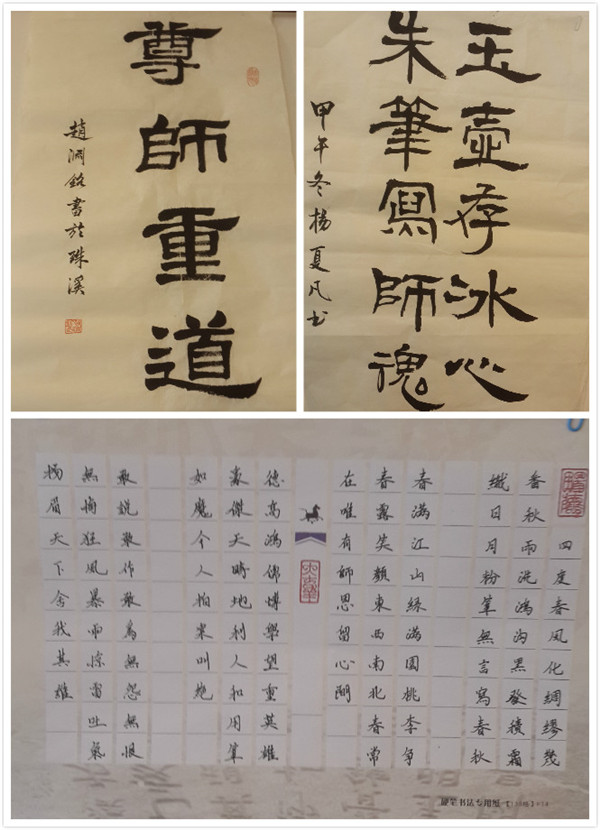 尊師重道
趙銘書於珠溪
玉壺存冰心
朱筆寫師魂
甲午冬楊夏凡书
四度春風化綢繆幾
番秋雨洗鴻溝黑發積霜
織日月粉筆無言寫春秋
春滿江山緑滿園桃李争
春露笑顏東西南北春常
在唯有師恩留心間
德高鴻儒博學望重英雄
豪傑天時地利人和用筆
如魔令人拍案叫絶
敢説敢作敢爲無怨無恨
無悔狂風暴雨驚雷吐氣
揚眉天下舍我其雄
硬笔书法专用纸